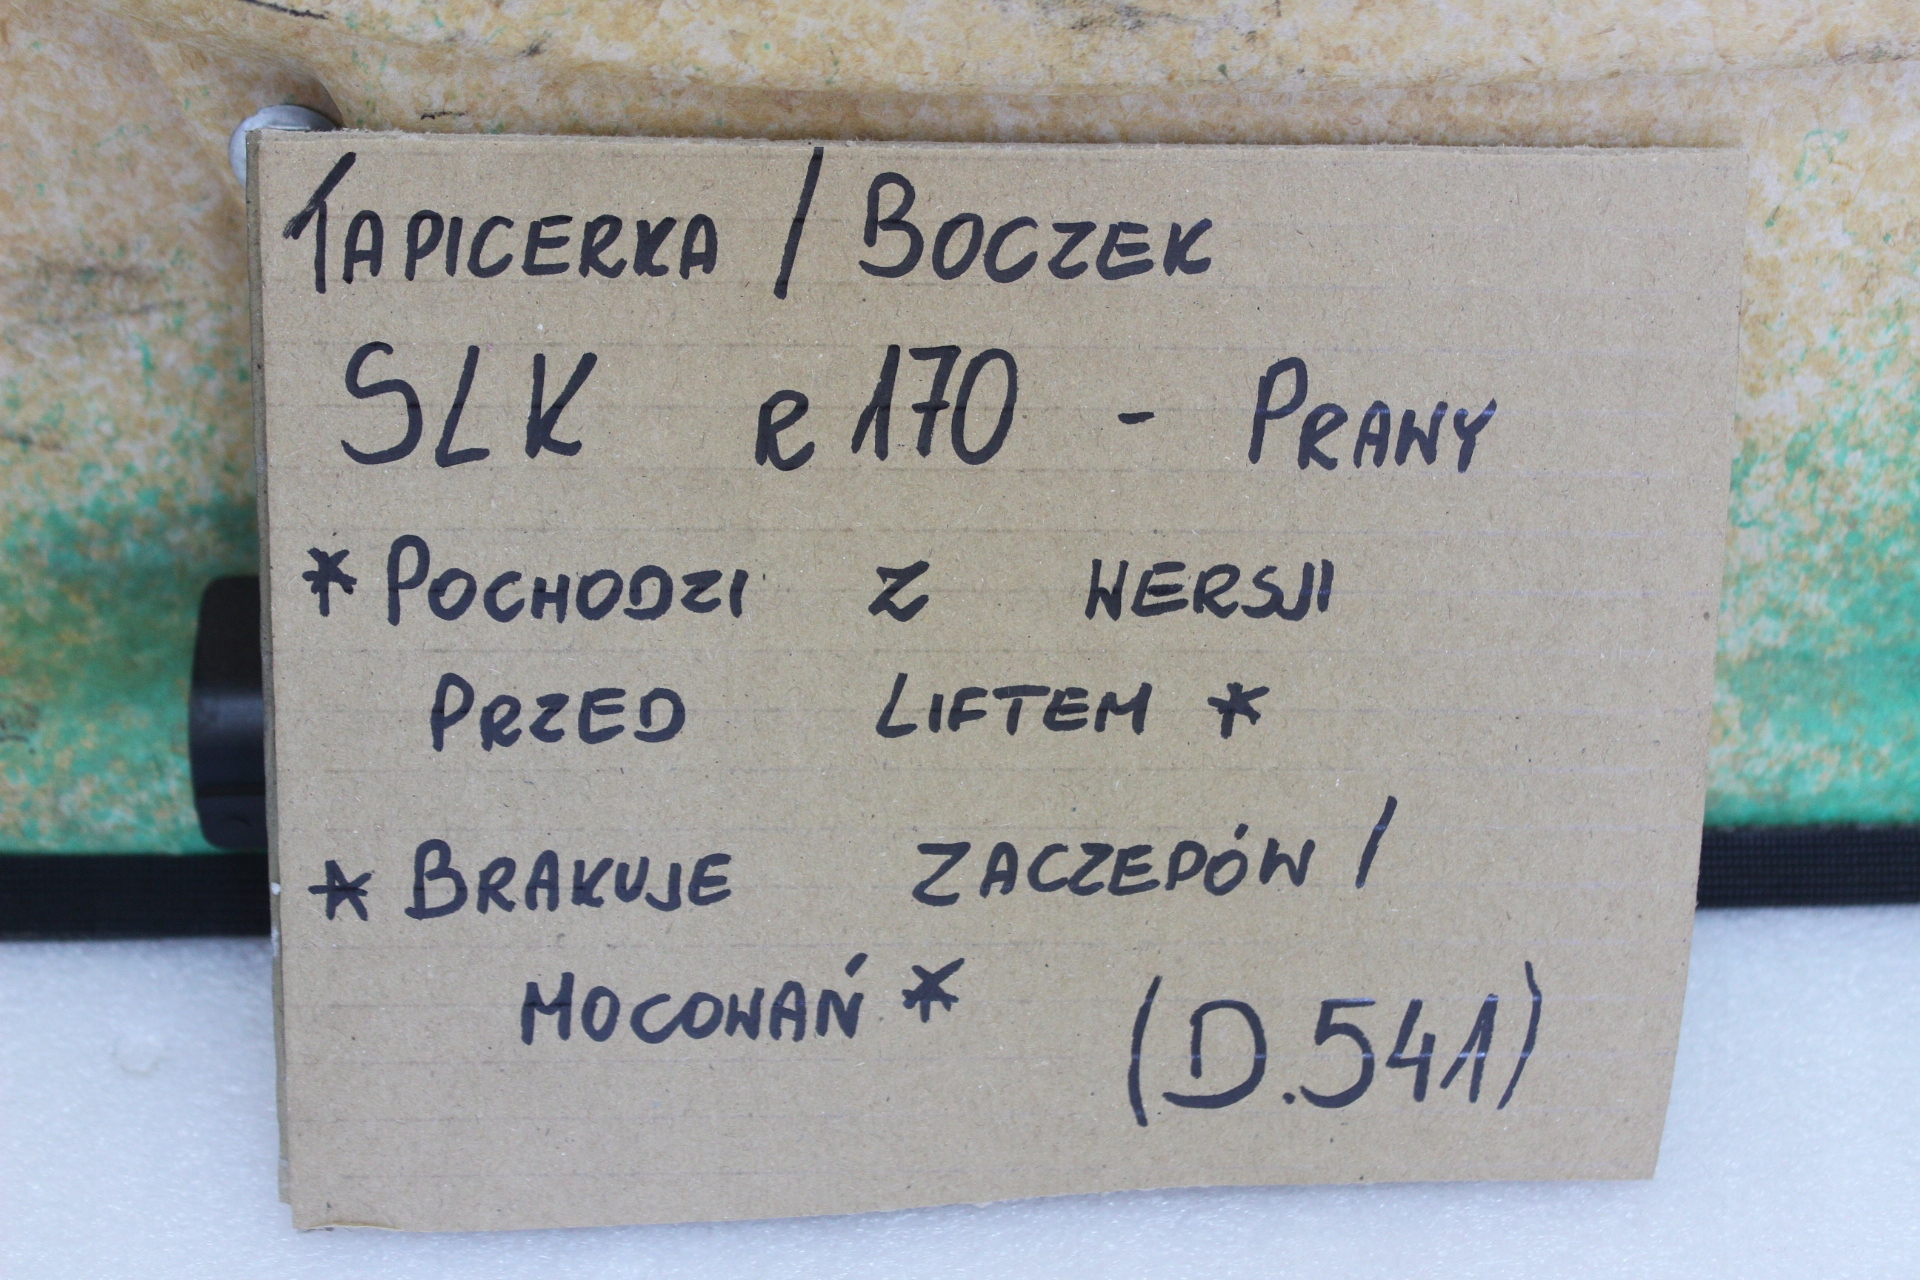 TAPICERKA / BOCZEK
SLK R170 - PRAWY
* POCHODZI Z WERSJI
PRZED LIFTEM *
* BRAKUJE ZACZEPÓW /
MOCOWAŃ * (D.541)